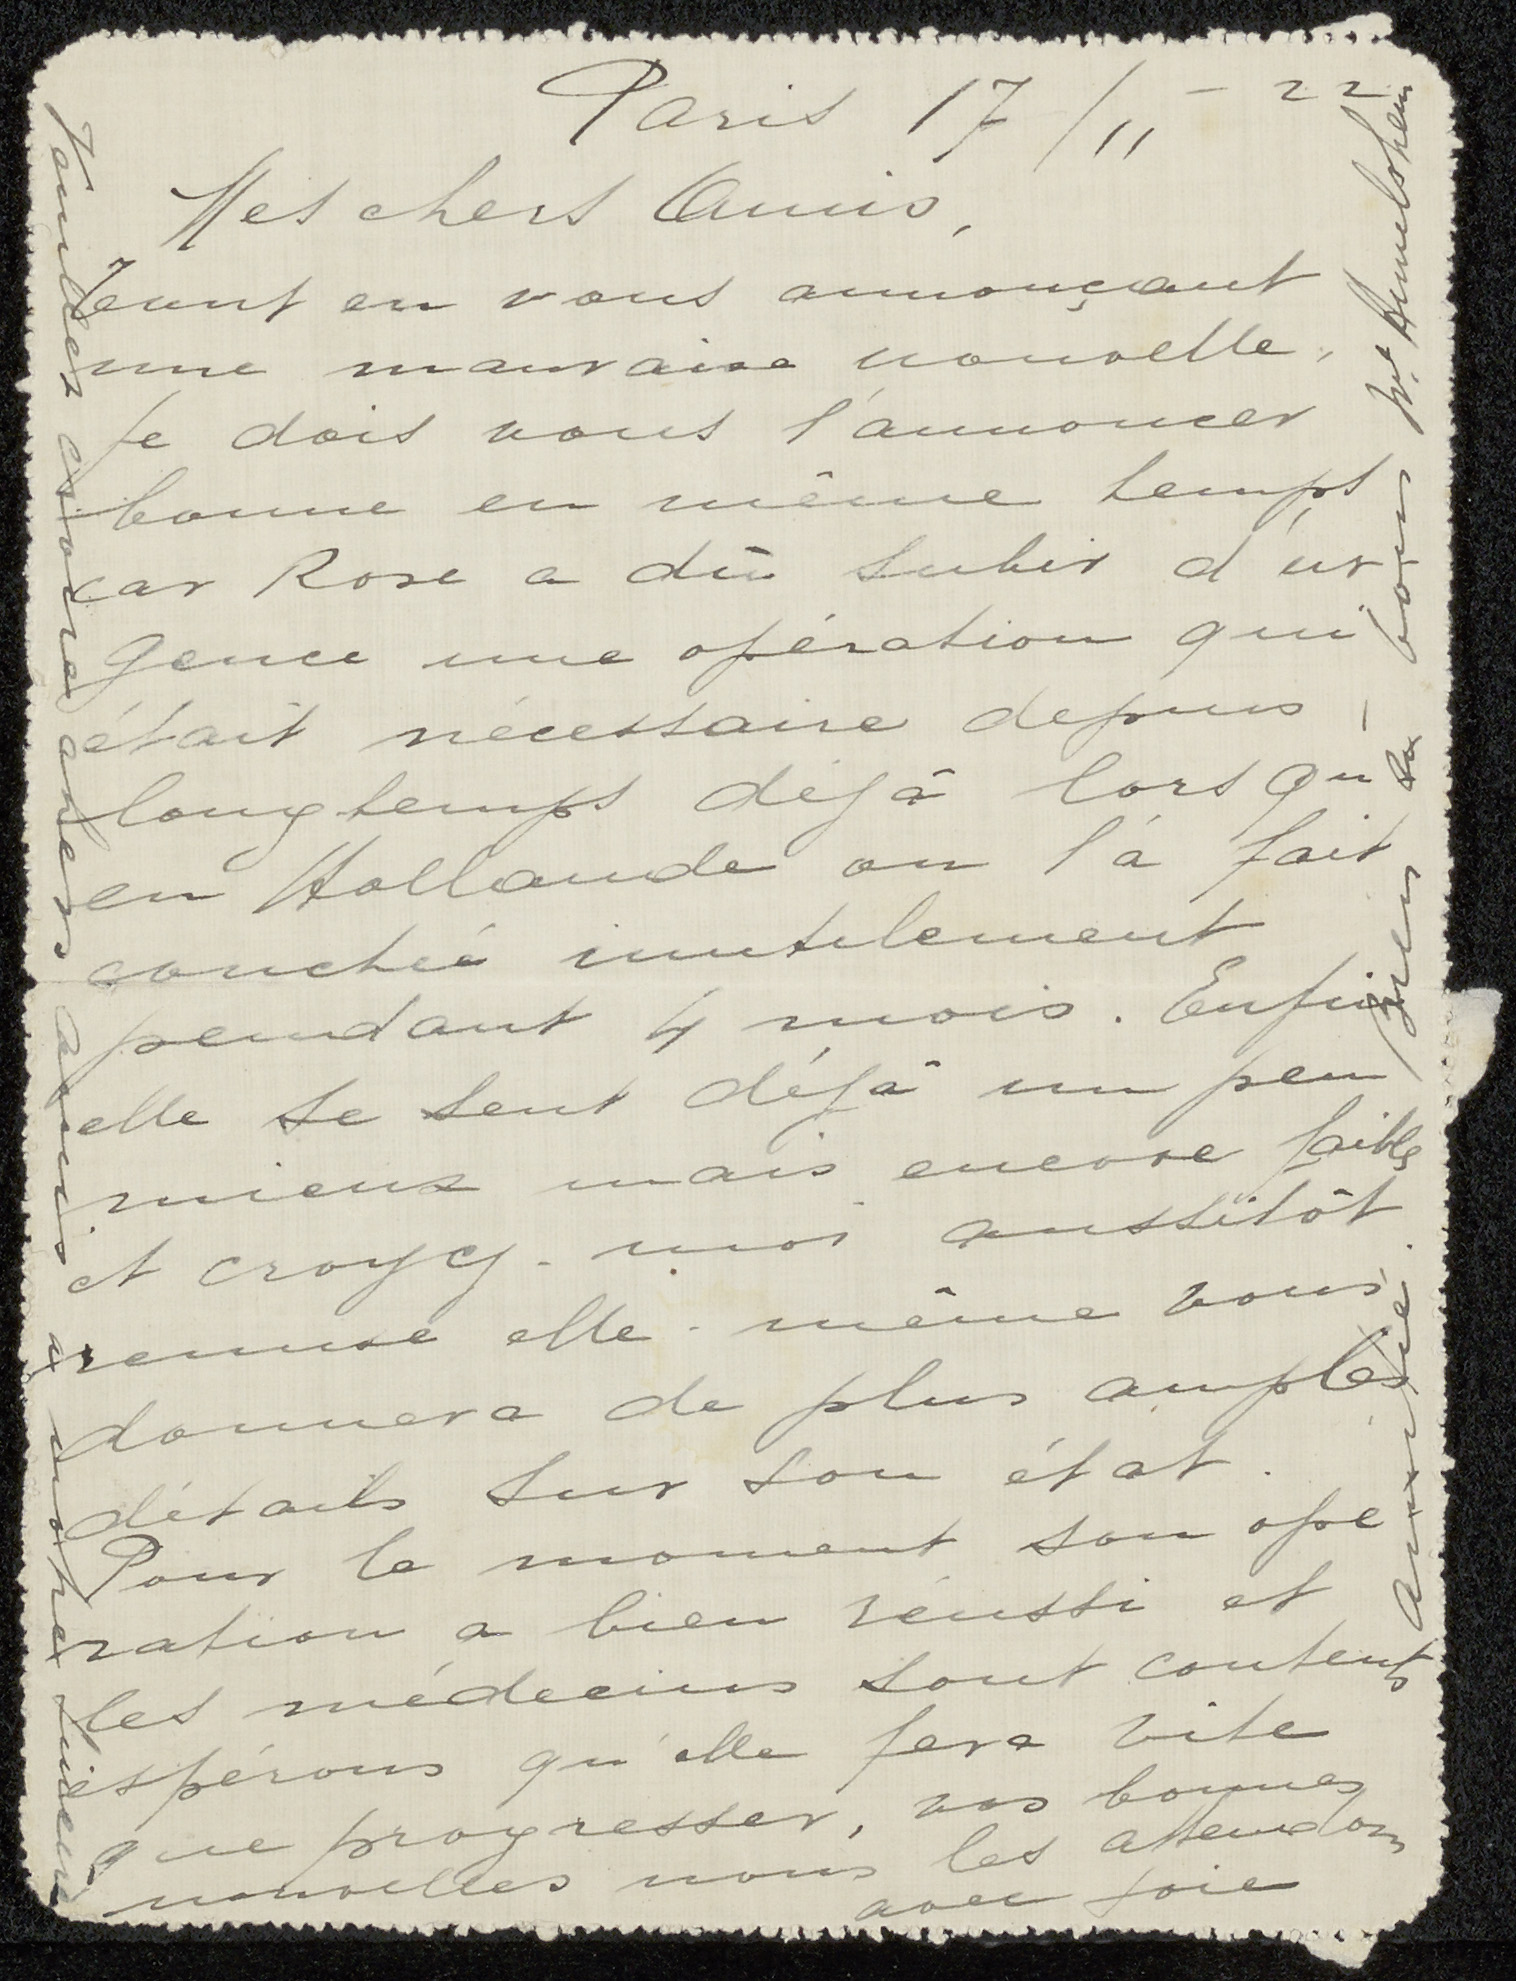 Paris 17/11 - 22
Mes chers Amis,
Tout en vous annonçant
une mauvaise nouvelle,
Je dois vous l'annoncer
bonne en même temps
car Rose a dû subir d'ur-
gence une opération qui
était nécessaire depuis
longtemps déjà lorsqu'
en Hollande on l'à fait
couchée inutilement
pendant 4 mois. Enfin
elle se sent déjà un peu
mieux mais encore faible
et croyez-moi aussitôt
remise elle-même vous
donnera de plus amples
détails sur son état.
Pour le moment son opé
ration a bien réussi et
les médecins sont contents
espérons qu'elle fera vite
que progresser, vos bonnes
nouvelles nous les attendons
avec joie
Veuillez croire chers amis à notre sincère
amitié.
Bien à vous